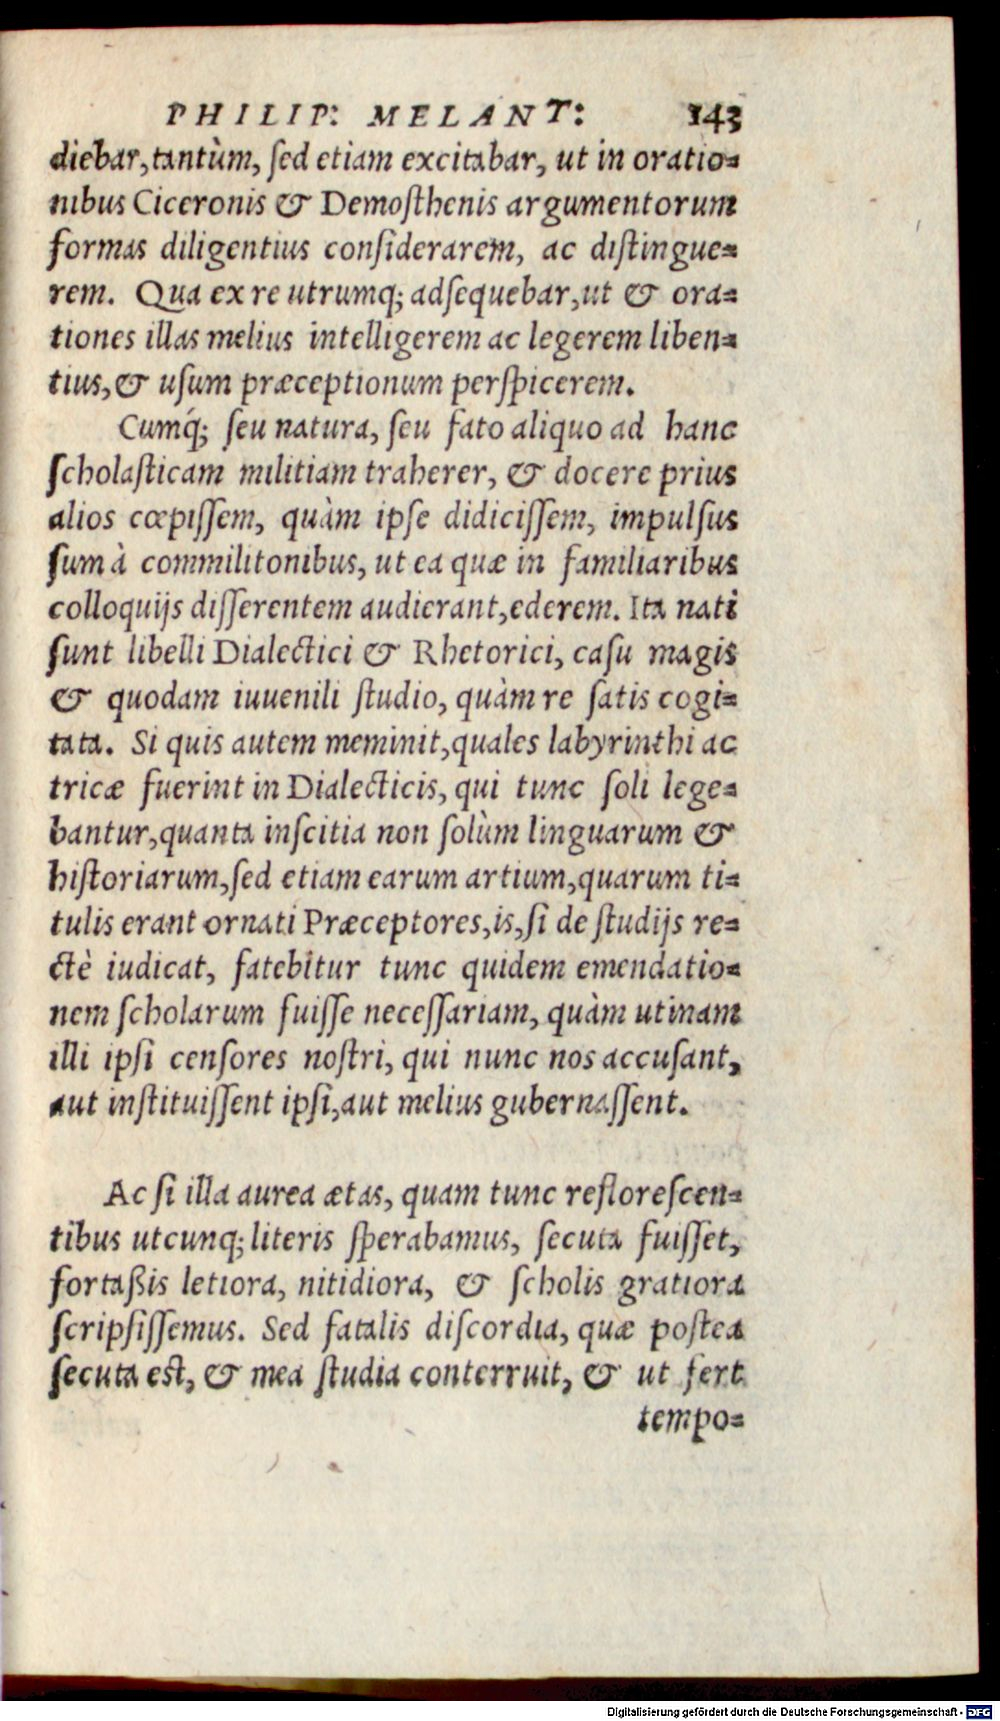 PHILIP: MELANT: 143
diebar, tantùm, sed etiam excitabar, ut in oratio-
nibus Ciceronis & Demosthenis argumentorum
formas diligentius considerarem, ac distingue-
rem. Qua ex re utrumq; adsequebar, ut & ora-
tiones illas melius intelligerem ac legerem liben-
tius, & usum præceptionum perspicerem.
Cumq́; seu natura, seu fato aliquo ad hanc
scholasticam militiam traherer, & docere prius
alios cœpissem, quàm ipse didicissem, impulsus
sum à commilitonibus, ut ea quæ in familiaribus
colloquijs disserentem audierant, ederem. Ita nati
sunt libelli Dialectici & Rhetorici, casu magis
& quodam iuuenili studio, quàm re satis cogi-
tata. Si quis autem meminit, quales labyrinthi ac
tricæ fuerint in Dialecticis, qui tunc soli lege-
bantur, quanta inscitia non solùm linguarum &
historiarum, sed etiam earum artium, quarum ti-
tulis erant ornati Præceptores, is, si de studijs re-
ctè iudicat, fatebitur tunc quidem emendatio-
nem scholarum fuisse necessariam, quàm utinam
illi ipsi censores nostri, qui nunc nos accusant,
aut instituissent ipsi, aut melius gubernassent.
Ac si illa aurea ætas, quam tunc reflorescen-
tibus utcunq; literis sperabamus, secuta fuisset,
fortaßis letiora, nitidiora, & scholis gratiora
scripsissemus. Sed fatalis discordia, quæ postea
secuta est, & mea studia conterruit, & ut fert
tempo-
Digitalisierung gefördert durch die Deutsche Forschungsgemeinschaft - DFG